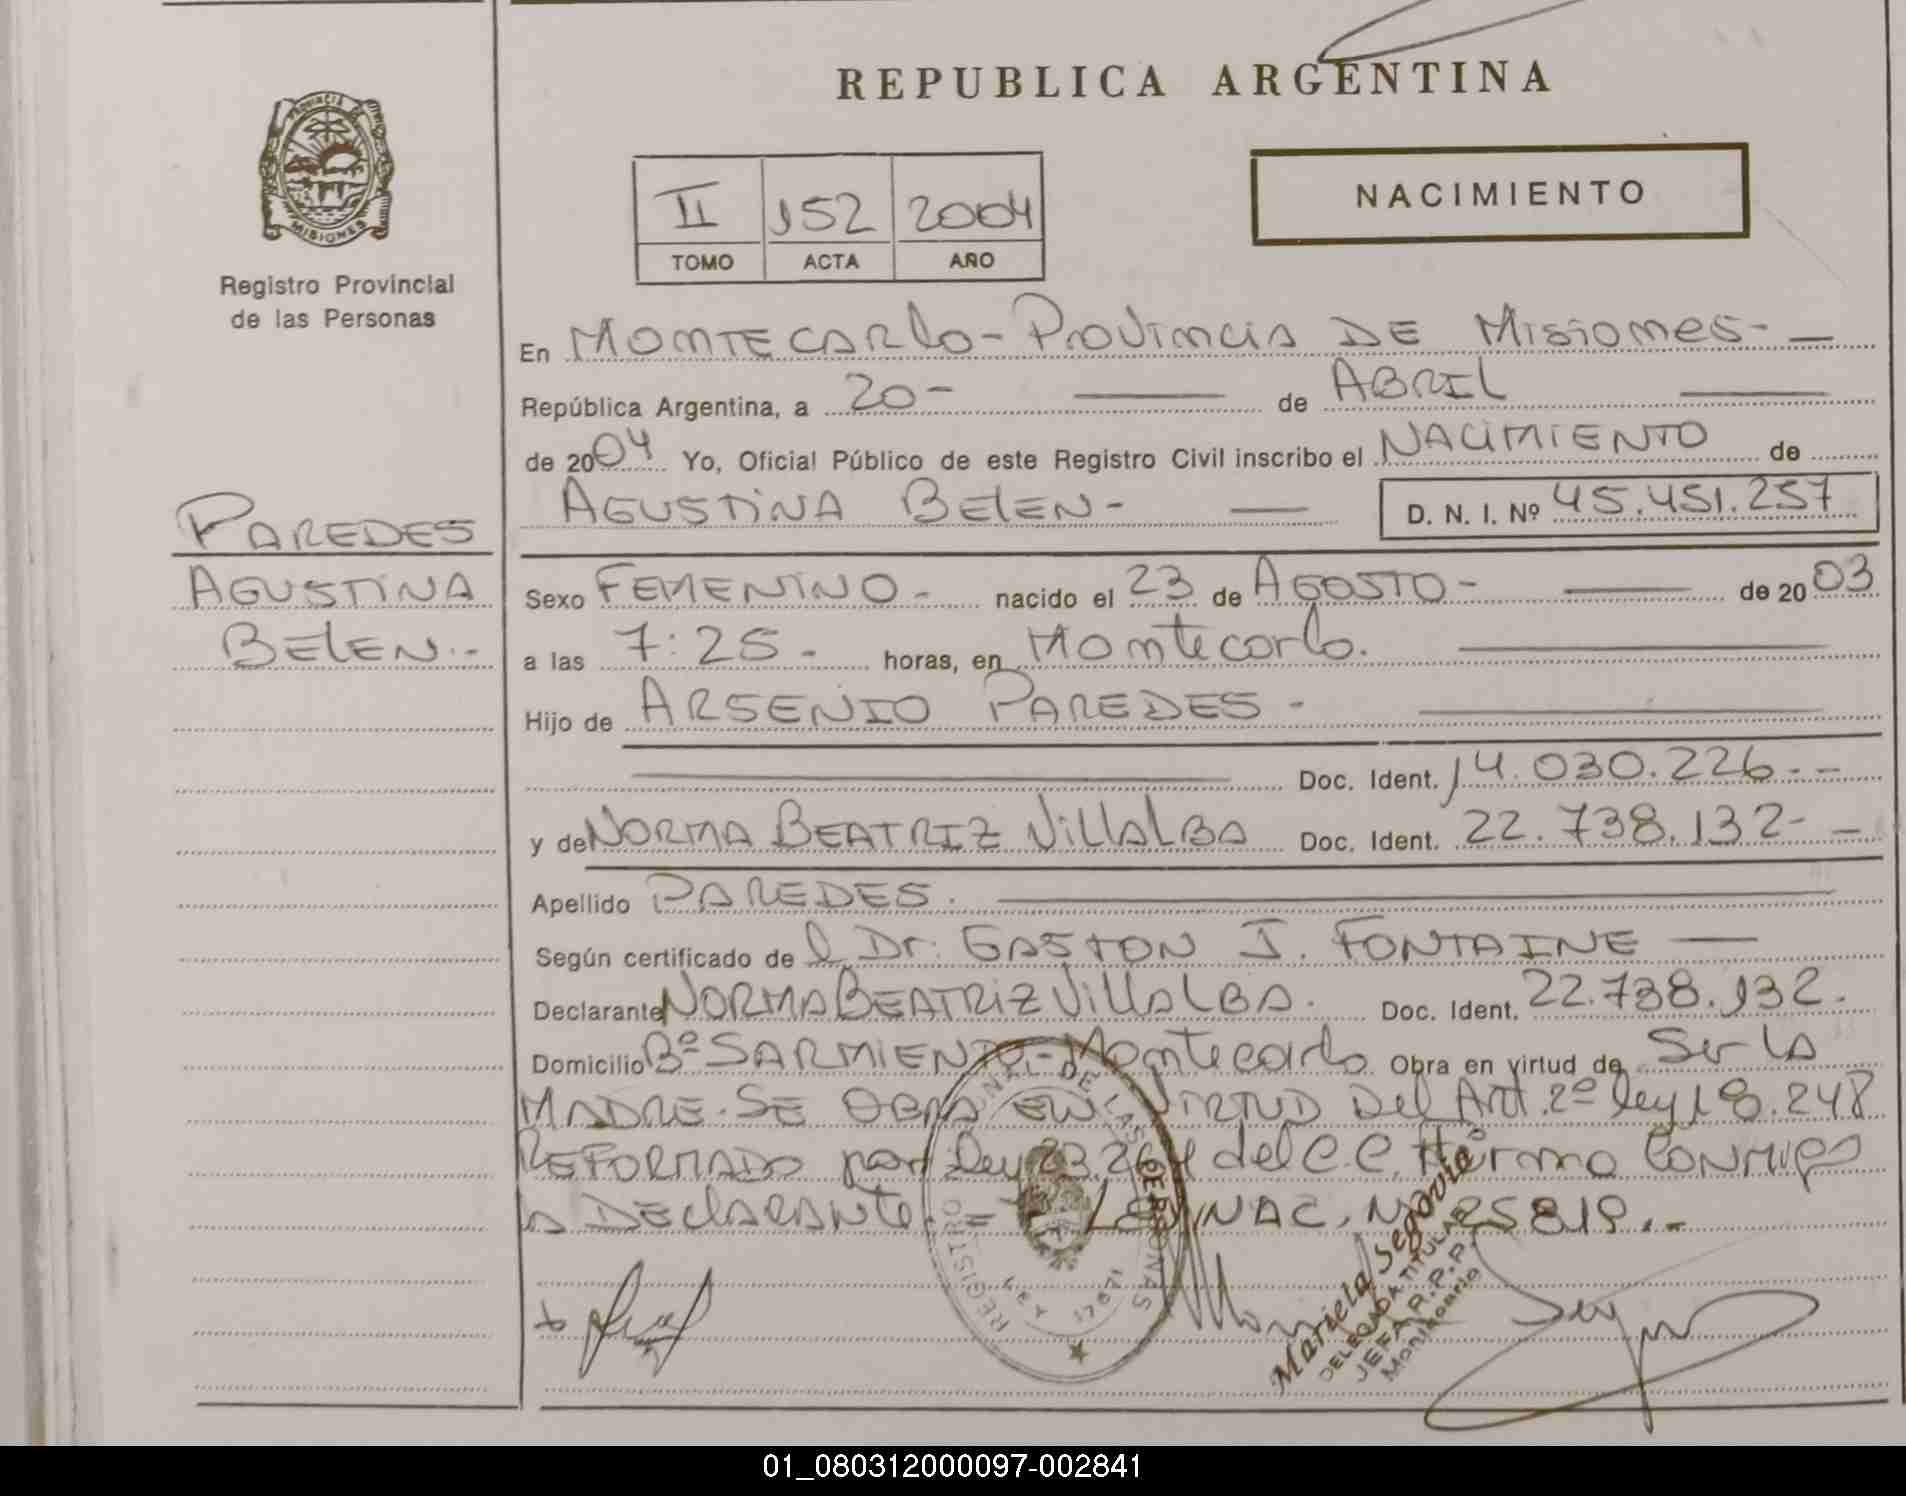 REPUBLICA ARGENTINA
NACIMIENTO
II 152 2004
TOMO ACTA AÑO
PROVINCIA DE MISIONES
Registro Provincial
de las Personas
En MONTECARlo - PROVINCIA DE MISIONES -
República Argentina, a 20 - de ABRIL
de 2004 Yo, Oficial Público de este Registro Civil inscribo el NACIMIENTO de
AGUSTINA BELEN - D. N. I. Nº 45.451.257
PAREDES
AGUSTINA
BELEN.-
Sexo FEMENINO - nacido el 23 de AGOSTO - de 2003
a las 7:25 - horas, en Montecarlo.
Hijo de ARSENIO PAREDES -
Doc. Ident. 14.030.226.--
y de NORMA BEATRIZ VillALBA Doc. Ident. 22.738.132- -
Apellido PAREDES.
Según certificado de l Dr. GASTON J. FONTAINE
Declarante NORMA BEATRIZ VillALBA. Doc. Ident. 22.738.132.
Domicilio Bº SARMIENTO - Montecarlo Obra en virtud de Ser LA
MADRE. SE OBRA EN VIRTUD Del Art. 2º ley 18.248
REFORMADO por ley 23.264 del C.C. Firma CONMIGO
LA DEClARANTE. = LEY NAC. Nº 25819.-
REGISTRO DE LAS PERSONAS
Mariela Segovia
DELEGADA TITULAR
JEFA R.P.P.
Montecarlo
01_080312000097-002841